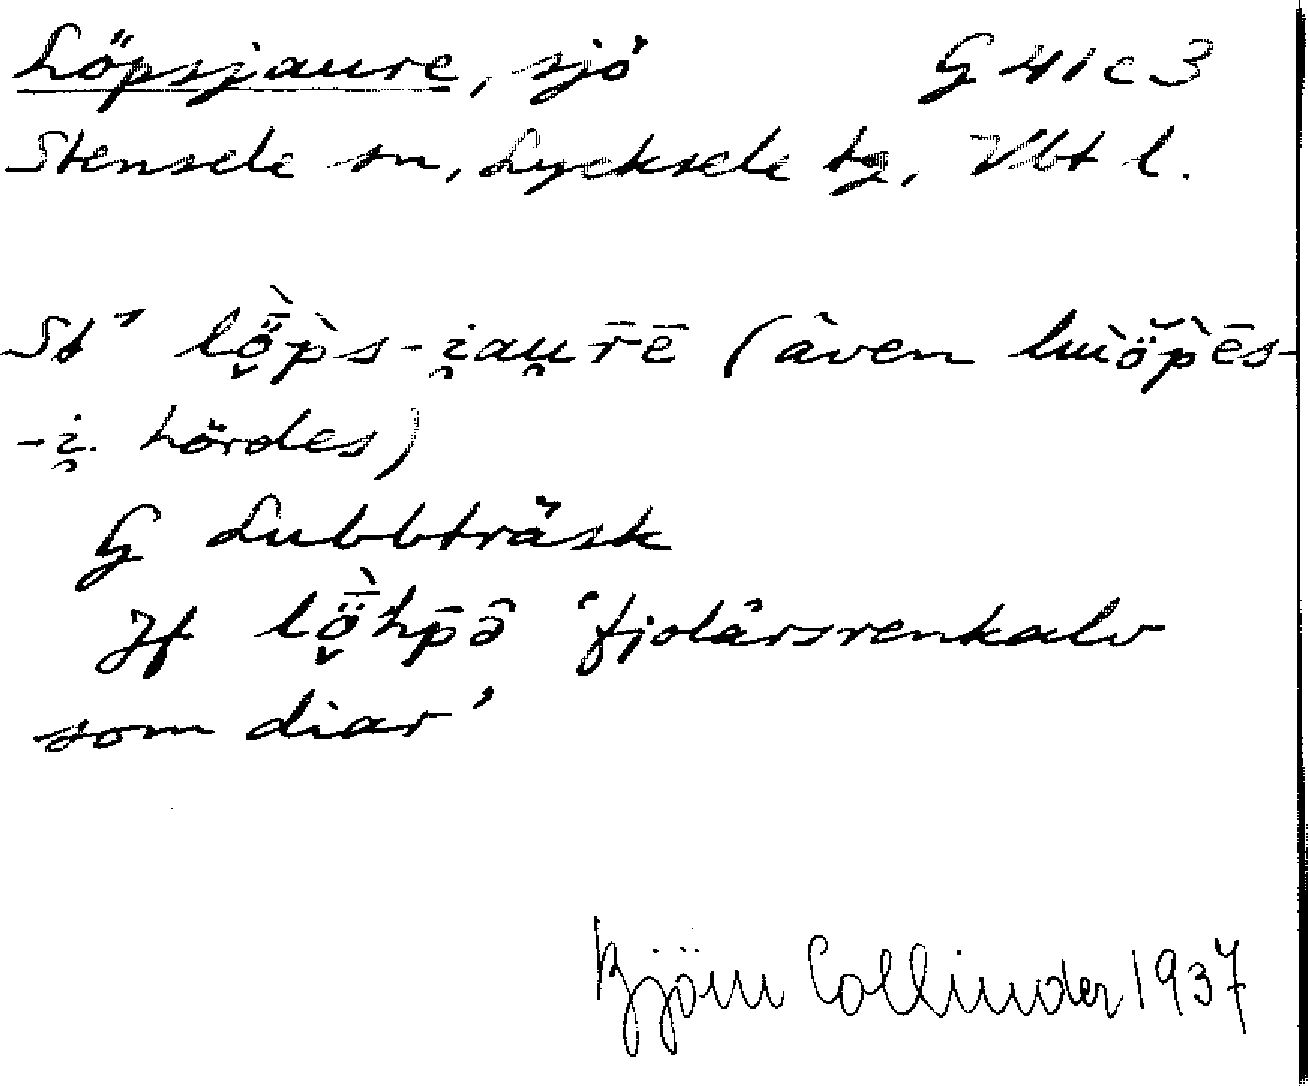 Löpsjaure, sjö G 41 c 3
Stensele sn, Lycksele tg, Vbt l.
St¹ lȫ̬̀pˋs-i̯au̯r̄ē (även luìö̆pˋēs-
-i̯. hördes)
G Lubbträsk
Jf lȫ̬̀hp̄ə̑ ‘fjolårsrenkalv
som diar’
Björn Collinder 1937